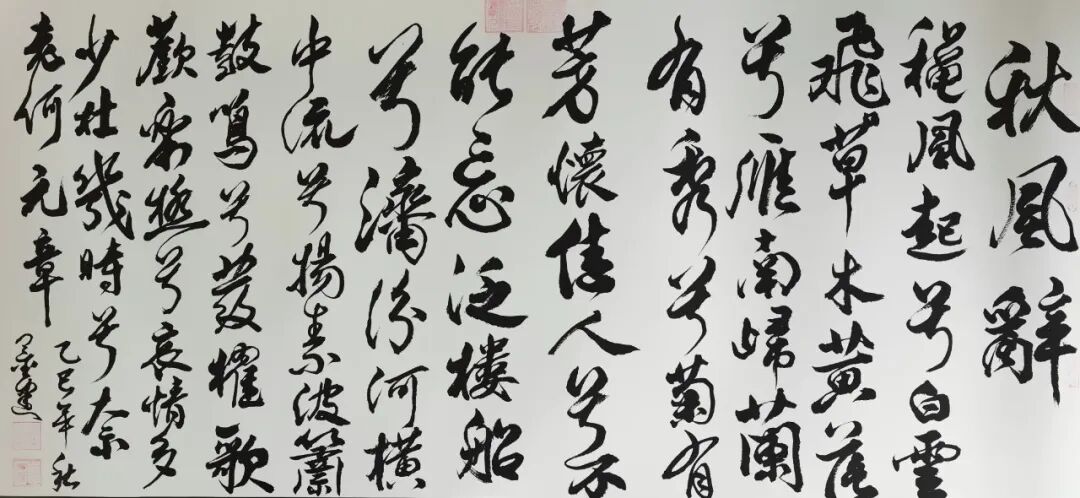 秋風辭
穐風起兮白雲
飛草木黄落
兮雁南歸蘭
有秀兮菊有
芳懷佳人兮不
能忘泛樓船
兮濟汾河橫
中流兮揚素波簫
鼓鳴兮發櫂歌
歡樂極兮哀情多
少壮幾時兮奈
老何元章
乙巳年秋